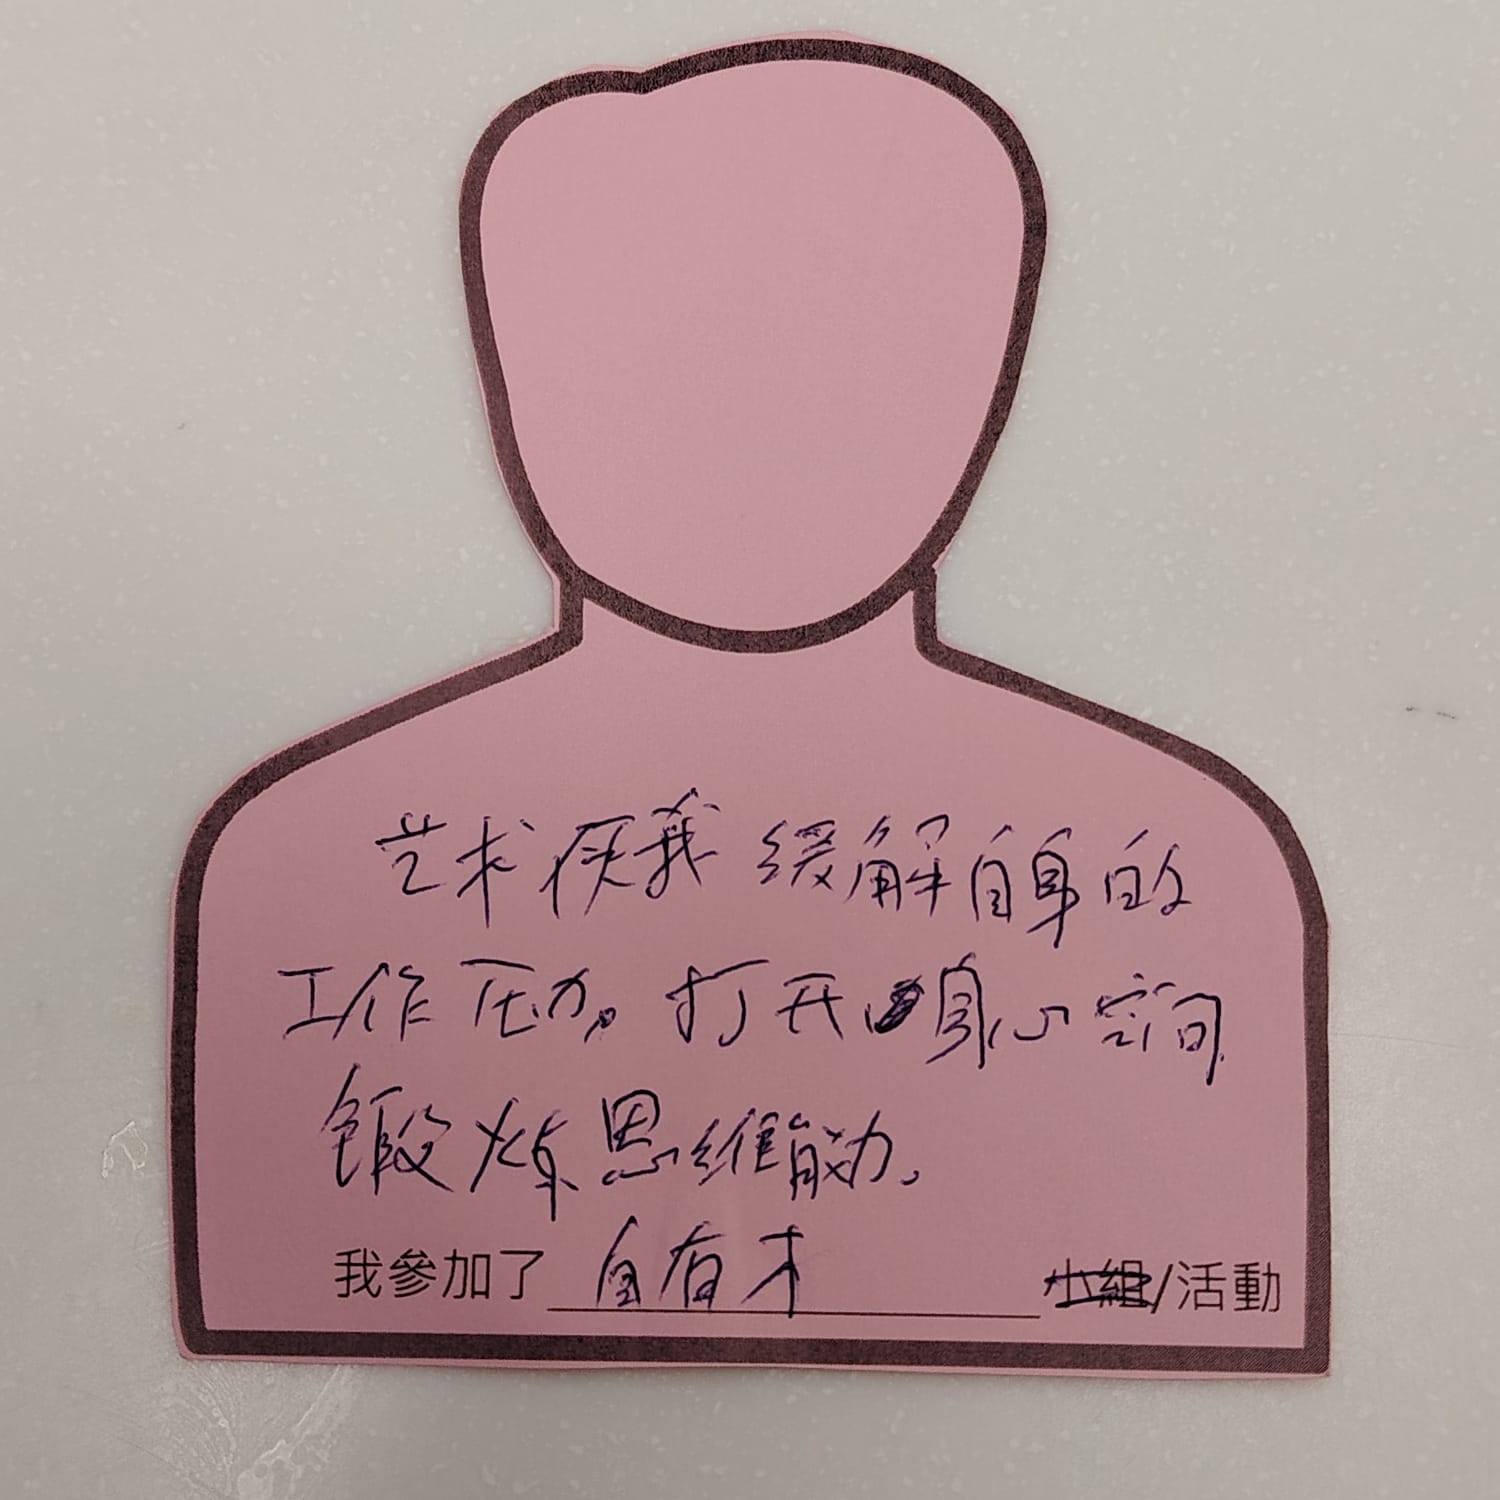 艺术使我缓解自身的
工作压力。打开身心空间
锻炼思维能力。
我參加了 自有才 小組/活動